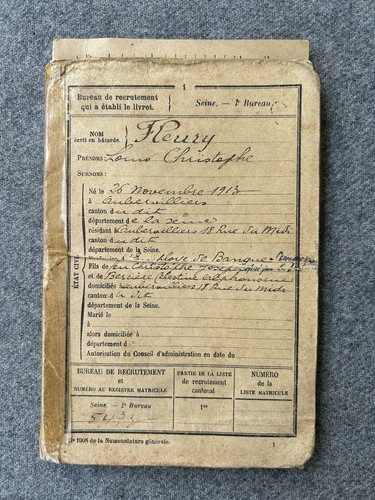 1
Bureau de recrutement
qui a établi le livret.
Seine. — 1er Bureau
NOM
écrit en bâtarde.
Fleury
PRÉNOMS: Louis Christophe
SURNOMS:
ÉTAT CIVIL
Né le 26 Novembre 1913
à Aubervilliers
canton du dit
département de la Seine
résidant à Aubervilliers 18 Rue du Midi
canton du dit
département de la Seine.
de Banque
Fils de Christophe Joseph
et de Célestine Alphonsine
domiciliés Aubervilliers 18 Rue du Midi
canton du dit
département de la Seine.
Marié le
à
alors domiciliée à
département d
Autorisation du Conseil d'administration en date du
BUREAU DE RECRUTEMENT
et
NUMÉRO AU REGISTRE MATRICULE
PARTIE DE LA LISTE
de recrutement
cantonal
NUMÉRO
de la
LISTE MATRICULE
Seine. — 1er Bureau
1re
1908 de la Nomenclature générale.
1